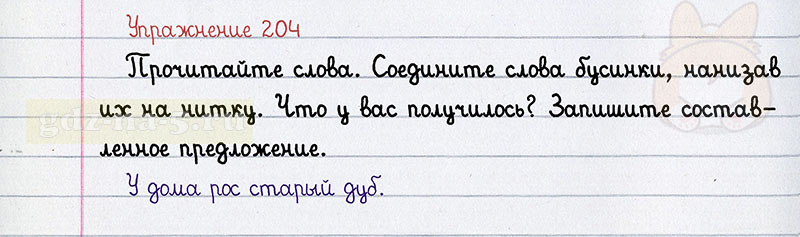 Упражнение 204
Прочитайте слова. Соедините слова бусинки, нанизав
их на нитку. Что у вас получилось? Запишите состав-
ленное предложение.
У дома рос старый дуб.
gdz-na-5.ru